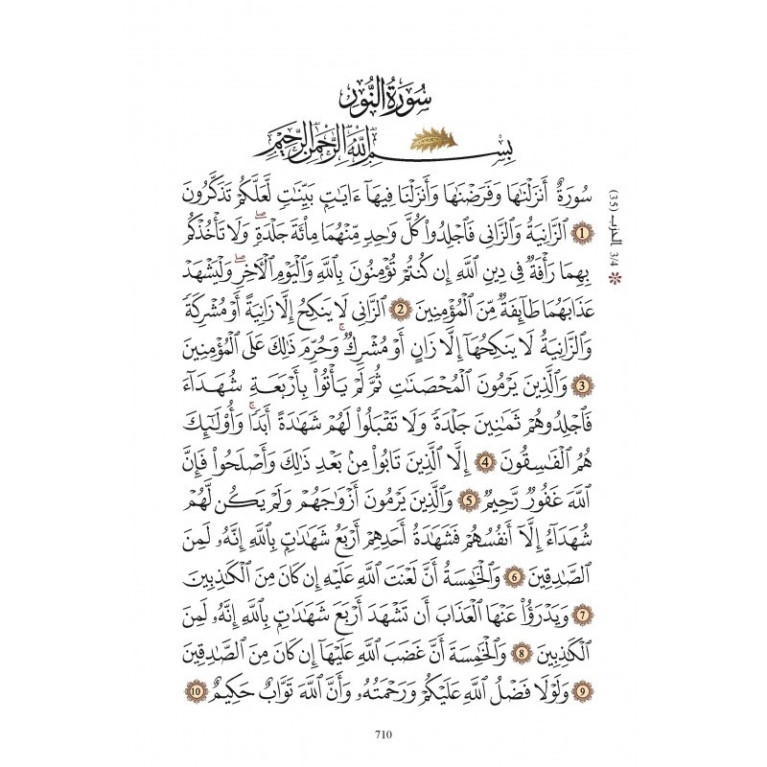 سُورَةُ النُّورِ
بِسْمِ اللَّهِ الرَّحْمَٰنِ الرَّحِيمِ
سُورَةٌ أَنزَلْنَٰهَا وَفَرَضْنَٰهَا وَأَنزَلْنَا فِيهَآ ءَايَٰتٍۭ بَيِّنَٰتٍ لَّعَلَّكُمْ تَذَكَّرُونَ
1 ٱلزَّانِيَةُ وَٱلزَّانِى فَٱجْلِدُوا۟ كُلَّ وَٰحِدٍ مِّنْهُمَا مِا۟ئَةَ جَلْدَةٍ ۖ وَلَا تَأْخُذْكُم
بِهِمَا رَأْفَةٌ فِى دِينِ ٱللَّهِ إِن كُنتُمْ تُؤْمِنُونَ بِٱللَّهِ وَٱلْيَوْمِ ٱلْـَٔاخِرِ ۖ وَلْيَشْهَدْ
عَذَابَهُمَا طَآئِفَةٌ مِّنَ ٱلْمُؤْمِنِينَ 2 ٱلزَّانِى لَا يَنكِحُ إِلَّا زَانِيَةً أَوْ مُشْرِكَةً
وَٱلزَّانِيَةُ لَا يَنكِحُهَآ إِلَّا زَانٍ أَوْ مُشْرِكٌ ۚ وَحُرِّمَ ذَٰلِكَ عَلَى ٱلْمُؤْمِنِينَ
3 وَٱلَّذِينَ يَرْمُونَ ٱلْمُحْصَنَٰتِ ثُمَّ لَمْ يَأْتُوا۟ بِأَرْبَعَةِ شُهَدَآءَ
فَٱجْلِدُوهُمْ ثَمَٰنِينَ جَلْدَةً وَلَا تَقْبَلُوا۟ لَهُمْ شَهَٰدَةً أَبَدًا ۚ وَأُو۟لَٰٓئِكَ
هُمُ ٱلْفَٰسِقُونَ 4 إِلَّا ٱلَّذِينَ تَابُوا۟ مِنۢ بَعْدِ ذَٰلِكَ وَأَصْلَحُوا۟ فَإِنَّ
ٱللَّهَ غَفُورٌ رَّحِيمٌ 5 وَٱلَّذِينَ يَرْمُونَ أَزْوَٰجَهُمْ وَلَمْ يَكُن لَّهُمْ
شُهَدَآءُ إِلَّآ أَنفُسُهُمْ فَشَهَٰدَةُ أَحَدِهِمْ أَرْبَعُ شَهَٰدَٰتٍۭ بِٱللَّهِ إِنَّهُۥ لَمِنَ
ٱلصَّٰدِقِينَ 6 وَٱلْخَٰمِسَةُ أَنَّ لَعْنَتَ ٱللَّهِ عَلَيْهِ إِن كَانَ مِنَ ٱلْكَٰذِبِينَ
7 وَيَدْرَؤُا۟ عَنْهَا ٱلْعَذَابَ أَن تَشْهَدَ أَرْبَعَ شَهَٰدَٰتٍۭ بِٱللَّهِ إِنَّهُۥ لَمِنَ
ٱلْكَٰذِبِينَ 8 وَٱلْخَٰمِسَةَ أَنَّ غَضَبَ ٱللَّهِ عَلَيْهَآ إِن كَانَ مِنَ ٱلصَّٰدِقِينَ
9 وَلَوْلَا فَضْلُ ٱللَّهِ عَلَيْكُمْ وَرَحْمَتُهُۥ وَأَنَّ ٱللَّهَ تَوَّابٌ حَكِيمٌ 10
3/4 الحزب (35)
710